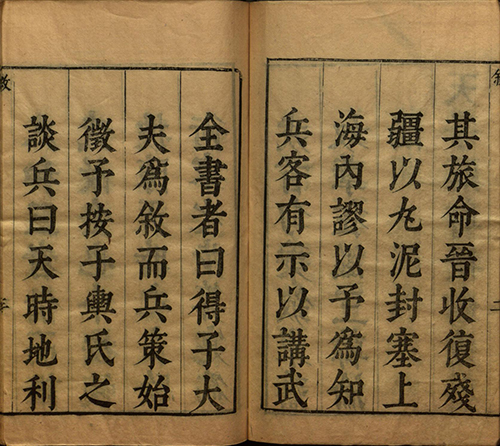 其旅命晉收復殘
疆以丸泥封塞上
海內謬以予為知
兵客有示以講武
全書者曰得子大
夫為敘而兵策始
徵予按子輿氏之
談兵曰天時地利